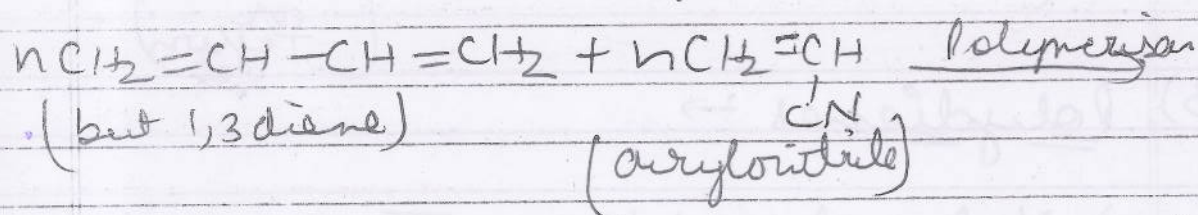 nCH2=CH-CH=CH2 + nCH2=CH Polymerisan
CN
(but 1,3 diene)
(acrylonitrile)